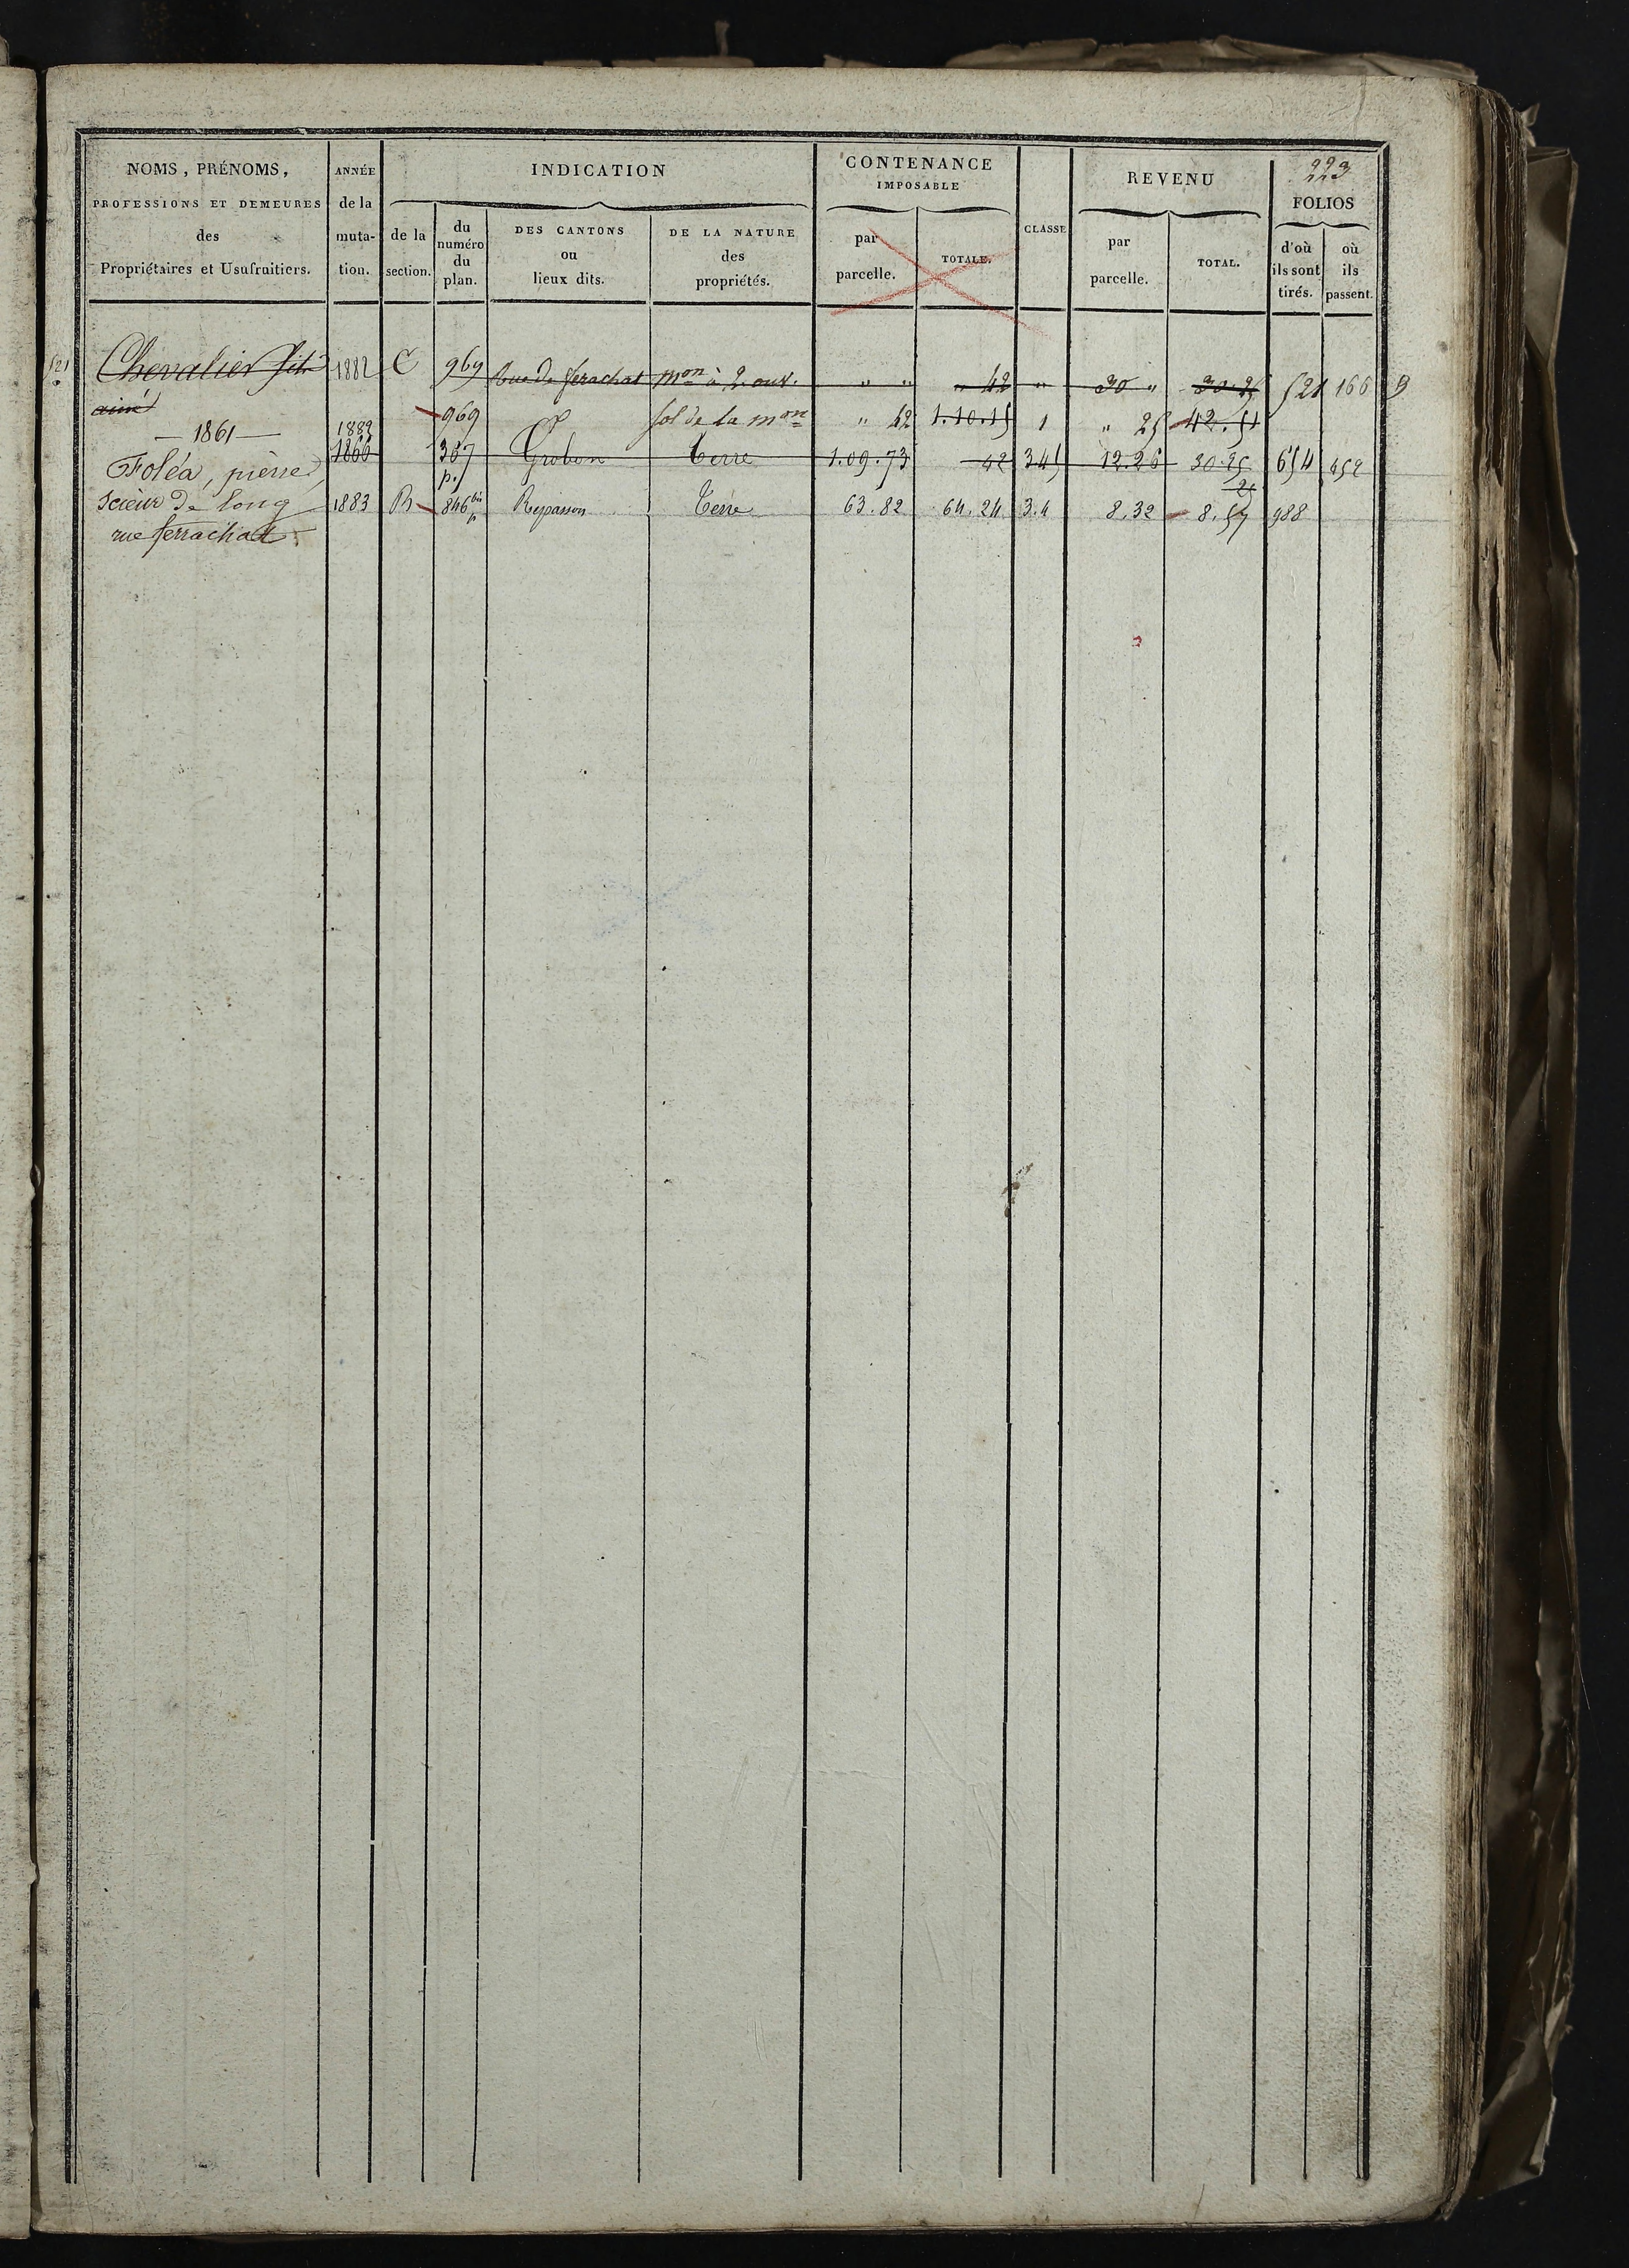 223
NOMS, PRÉNOMS, ANNÉE INDICATION CONTENANCE IMPOSABLE CLASSE REVENU FOLIOS
PROFESSIONS ET DEMEURES de la
des muta- de la du numéro du plan. DES CANTONS ou lieux dits. DE LA NATURE des propriétés. par parcelle. TOTALE. par parcelle. TOTAL. d'où ils sont tirés. où ils passent.
Propriétaires et Usufruitiers. tion. section.
521 Chevalier 1882 C 969 Rue de ferachat mon à 2 ouv. " " " 42 " 30 " 30.25 521 166 B
aimé 969 sol de la mon " 42 1.10.15 1 " 25 42.51
— 1861 — 1882
Foléa, pièrre, 1866 307 p. Terre 1.09.73 42 345 12.26 30.25 654 952
scièur de long 1883 B 846 bis p Repasson Terre 63.82 64.24 3.4 8.32 8.57 988
rue ferrachat.